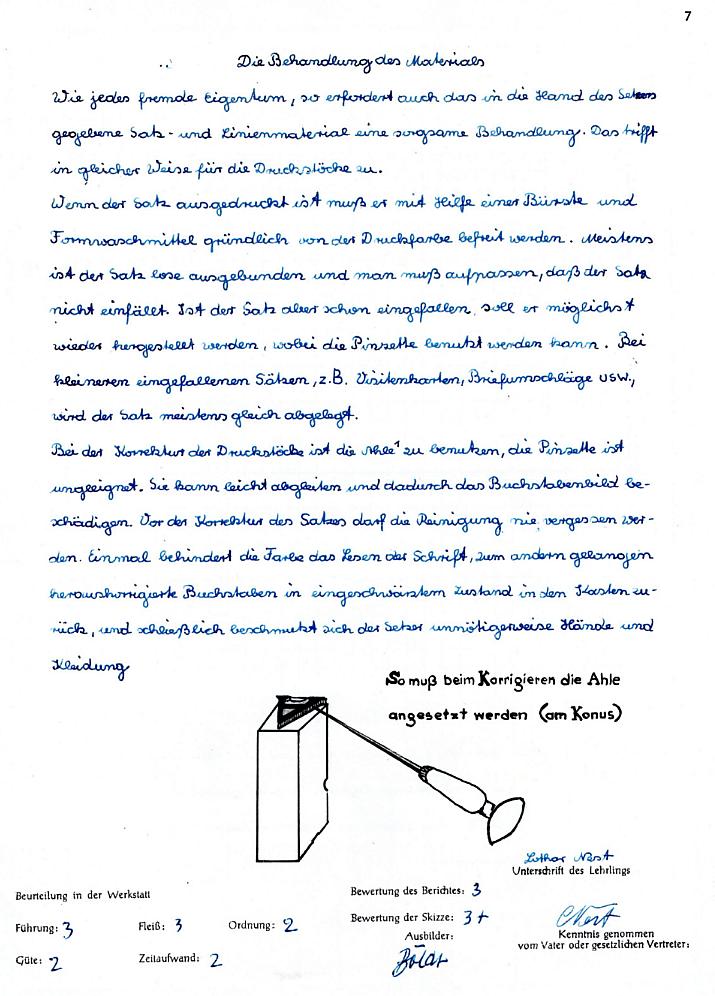 7
Die Behandlung des Materials
Wie jedes fremde Eigentum, so erfordert auch das in die Hand des Setzers
gegebene Satz- und Linienmaterial eine sorgsame Behandlung. Das trifft
in gleicher Weise für die Druckstöcke zu.
Wenn der Satz ausgedruckt ist muß er mit Hilfe einer Bürste und
Formwaschmittel gründlich von der Druckfarbe befreit werden. Meistens
ist der Satz lose ausgebunden und man muß aufpassen, daß der Satz
nicht einfällt. Ist der Satz aber schon eingefallen, soll er möglichst
wieder hergestellt werden, wobei die Pinzette benutzt werden kann. Bei
kleineren eingefallenen Sätzen, z.B. Visitenkarten, Briefumschläge usw.,
wird der Satz meistens gleich abgelegt.
Bei der Korrektur der Druckstöcke ist die Ahle zu benutzen, die Pinzette ist
ungeeignet. Sie kann leicht abgleiten und dadurch das Buchstabenbild be-
schädigen. Vor der Korrektur des Satzes darf die Reinigung nie vergessen wer-
den. Einmal behindert die Farbe das Lesen der Schrift, zum andern gelangen
herauskorrigierte Buchstaben in eingeschwärztem Zustand in den Kasten zu-
rück, und schließlich beschmutzt sich der Setzer unnötigerweise Hände und
Kleidung
So muß beim Korrigieren die Ahle
angesetzt werden (am Konus)
Unterschrift des Lehrlings
Beurteilung in der Werkstatt
Bewertung des Berichtes: 3
Führung: 3 Fleiß: 3 Ordnung: 2
Bewertung der Skizze: 3+
Ausbilder:
Kenntnis genommen
vom Vater oder gesetzlichen Vertreter:
Güte: 2 Zeitaufwand: 2